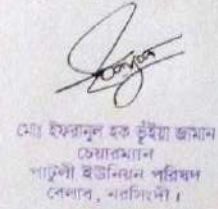 মোঃ ইফরানুল হক ভূঁইয়া জামান
চেয়ারম্যান
পাটুলী ইউনিয়ন পরিষদ
বেলাব, নরসিংদী।